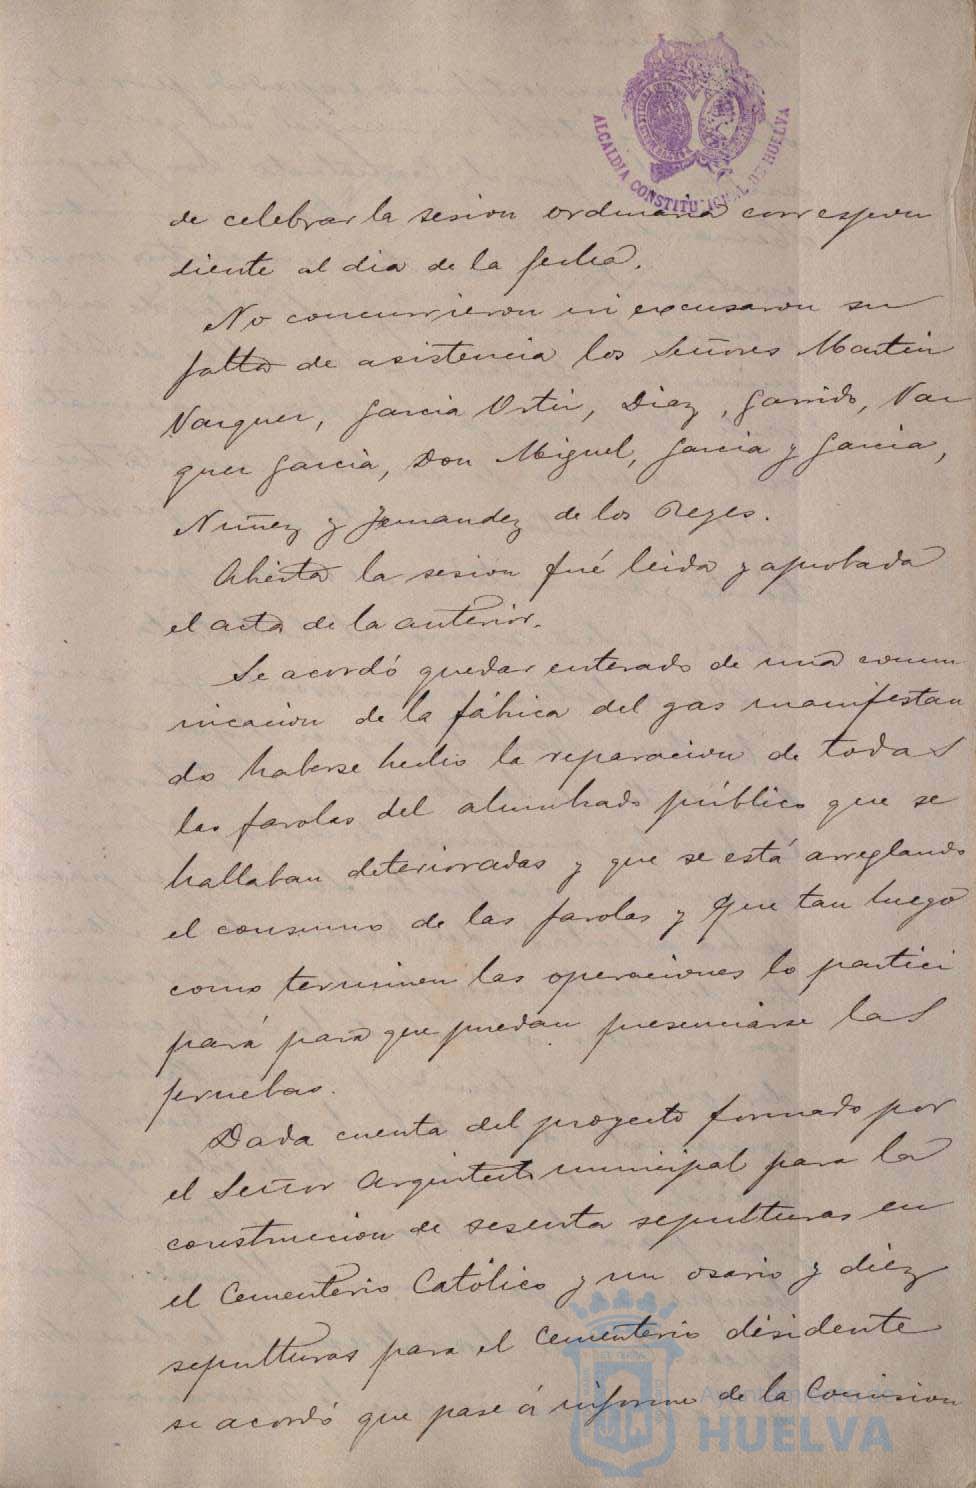 ALCALDIA CONSTITUCIONAL DE HUELVA
de celebrar la sesion ordinaria correspon
diente al dia de la fecha.
No concurrieron ni excusaron su
falta de asistencia los Señores Martin
Vazquez, Garcia Ortiz, Diaz, Garrido, Vaz
quez Garcia, Don Miguel, Garcia y Garcia,
Nuñez y Fernandez de los Reyes.
Abierta la sesion fué leida y aprobada
el acta de la anterior.
Se acordó quedar enterado de una comu
nicacion de la fábrica del gas manifestan
do haberse hecho la reparacion de todas
las farolas del alumbrado público que se
hallaban deterioradas y que se está arreglando
el consumo de las farolas y que tan luego
como terminen las operaciones lo partici
pará para que puedan presenciarse las
pruebas.
Dada cuenta del proyecto formado por
el Señor Arquitecto municipal para la
construccion de sesenta sepulturas en
el Cementerio Católico y un osario y diez
sepulturas para el Cementerio disidente
se acordó que pase á informe de la Comision
Ayuntamiento de
HUELVA